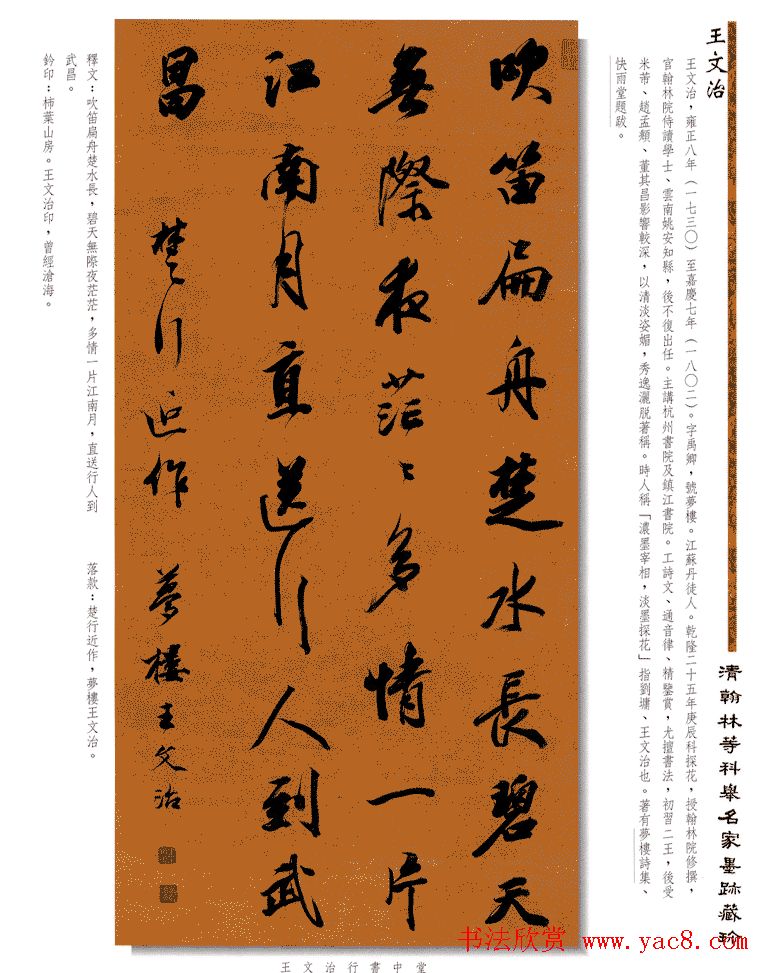 王文治
王文治，雍正八年（一七三〇）至嘉慶七年（一八〇二）。字禹卿，號夢樓。江蘇丹徒人。乾隆二十五年庚辰科探花，授翰林院修撰，
官翰林院侍讀學士、雲南姚安知縣，後不復出任。主講杭州書院及鎮江書院。工詩文、通音律、精鑒賞，尤擅書法，初習二王，後受
米芾、趙孟頫、董其昌影響較深，以清淡姿媚，秀逸灑脱著稱。時人稱「濃墨宰相，淡墨探花」指劉墉、王文治也。著有夢樓詩集、
快雨堂題跋。
清翰林等科舉名家墨跡藏珍
吹笛扁舟楚水長碧天
無際夜茫〻多情一片
江南月直送行人到武
昌
楚行近作 夢樓王文治
釋文：吹笛扁舟楚水長，碧天無際夜茫茫，多情一片江南月，直送行人到
武昌。
鈐印：柿葉山房。王文治印，曾經滄海。
落款：楚行近作，夢樓王文治。
王文治行書中堂
书法欣赏 www.yac8.com